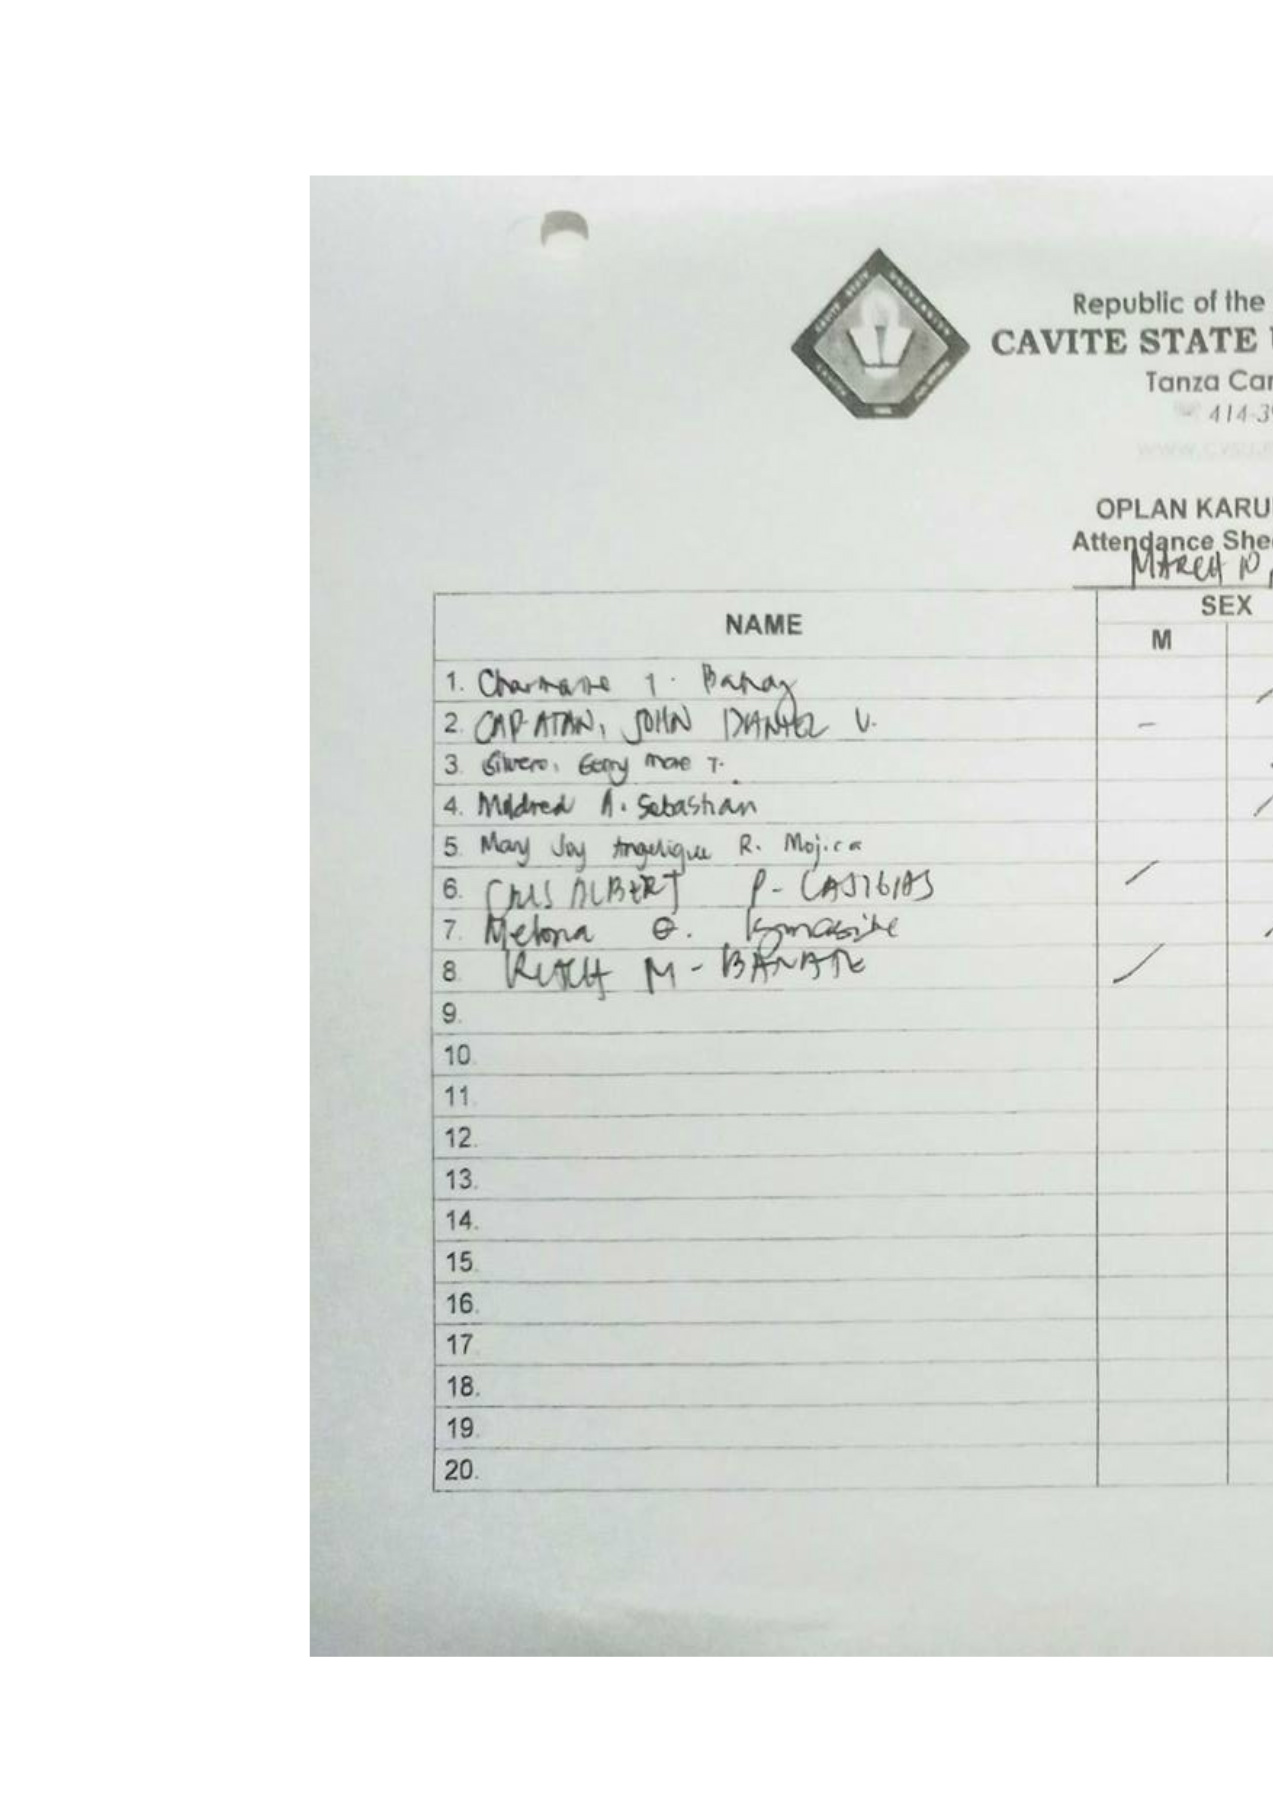 Republic of the
CAVITE STATE
Tanza Car
414-39
OPLAN KARU
Attendance Shee
MARCH 10,
NAME
SEX
M
1. Charmaine T. Banay
2. CAPATAN, JOHN DANIEL V.
3. Silvero, Gerry Mae T.
4. Mildred A. Sebastian
5. Mary Joy Angelique R. Mojica
6. ALBERT P-
7. Melona
8. M - BANATE
9.
10.
11.
12.
13.
14.
15.
16.
17.
18.
19.
20.